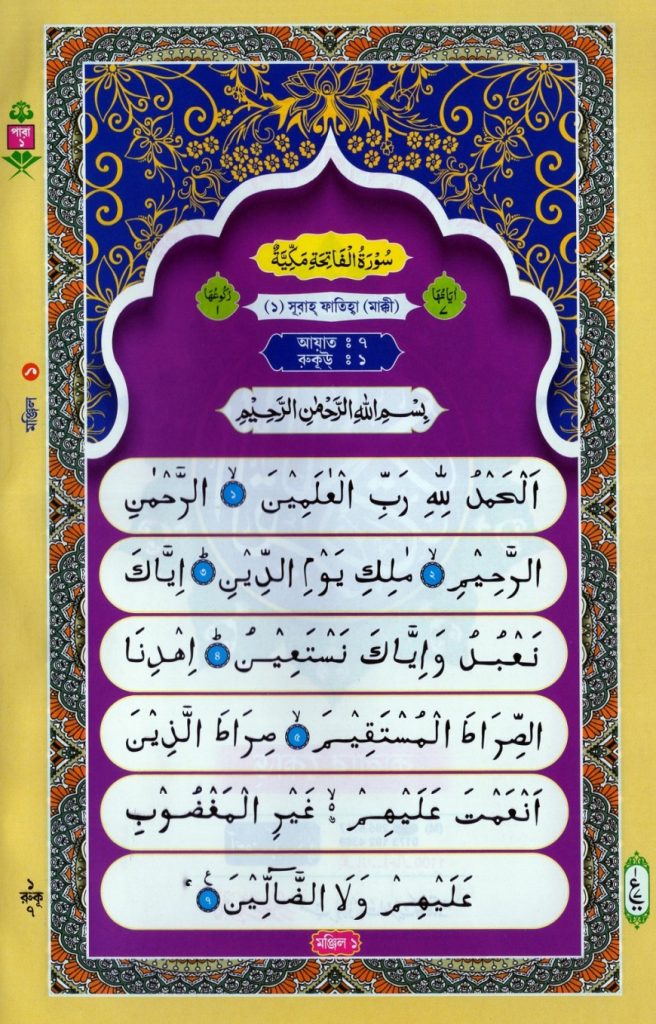 পারা
১
سُوْرَةُ الْفَاتِحَةِ مَكِّيَّةٌ
اٰيَاتُهَا
٧
رُكُوْعُهَا
١
(১) সূরাহ্ ফাতিহা (মাক্কী)
আয়াত : ৭
রুকূউ : ১
بِسْمِ اللّٰهِ الرَّحْمٰنِ الرَّحِيْمِ
মঞ্জিল ১
اَلْحَمْدُ لِلّٰهِ رَبِّ الْعٰلَمِيْنَ ۙ ১ الرَّحْمٰنِ
الرَّحِيْمِ ۙ ২ مٰلِكِ يَوْمِ الدِّيْنِ ؕ ৩ اِيَّاكَ
نَعْبُدُ وَاِيَّاكَ نَسْتَعِيْنُ ؕ ৪ اِهْدِنَا
الصِّرَاطَ الْمُسْتَقِيْمَ ۙ ৫ صِرَاطَ الَّذِيْنَ
اَنْعَمْتَ عَلَيْهِمْ ۙ غَيْرِ الْمَغْضُوْبِ
عَلَيْهِمْ وَلَا الضَّآلِّيْنَ ৭
১
রুকূ
৭
মঞ্জিল ১